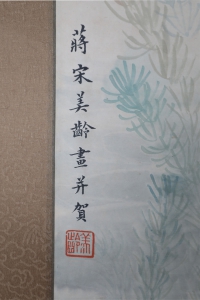 蔣宋美齡畫并賀